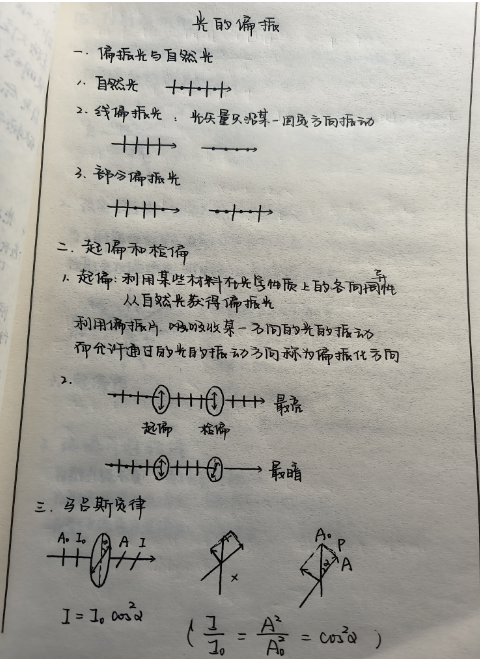 光的偏振
一. 偏振光与自然光
1. 自然光
2. 线偏振光: 光矢量只沿某一固定方向振动
3. 部分偏振光
二. 起偏和检偏
1. 起偏: 利用某些材料在光学性质上的各向异性
从自然光获得偏振光
利用偏振片 吸收某一方向的光的振动
而允许通过的光的振动方向称为偏振化方向
2.
最亮
起偏 检偏
最暗
三. 马吕斯定律
A₀ I₀ A I
α
x
A₀ P A α
I = I₀ cos²α
( I/I₀ = A²/A₀² = cos²α )